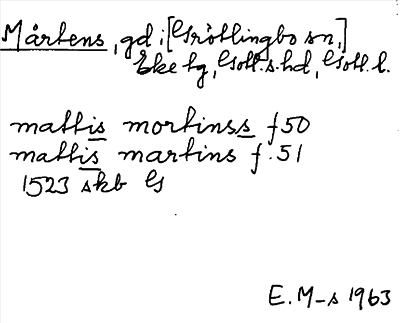 Mårtens, gd i [Grötlingbo sn,]
Eke tg, Gotl.s.hd, Gotl.l.
mattis mortinss f 50
mattis martins f. 51
1523 skb G
E.M-s 1963